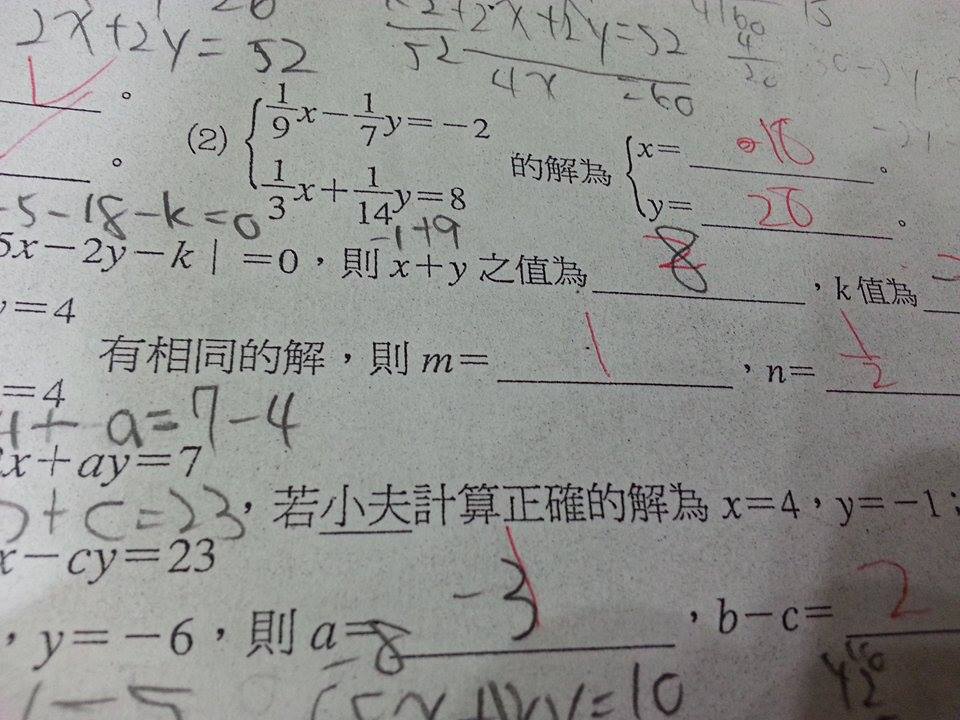 2x+2y=52
4x =60
(2) { 1/9 x − 1/7 y = −2
1/3 x + 1/14 y = 8
的解為 { x= 18 。
y= 28 。
-5-18-k=0
-1+9
5x−2y−k | =0，則 x+y 之值為 8 ，k 值為
y=4
有相同的解，則 m= 1 ，n= 1/2
=4
a=7-4
x+ay=7
+c=23
，若小夫計算正確的解為 x=4，y=−1；
x−cy=23
，y=−6，則 a= -3 ，b−c= 2
-8